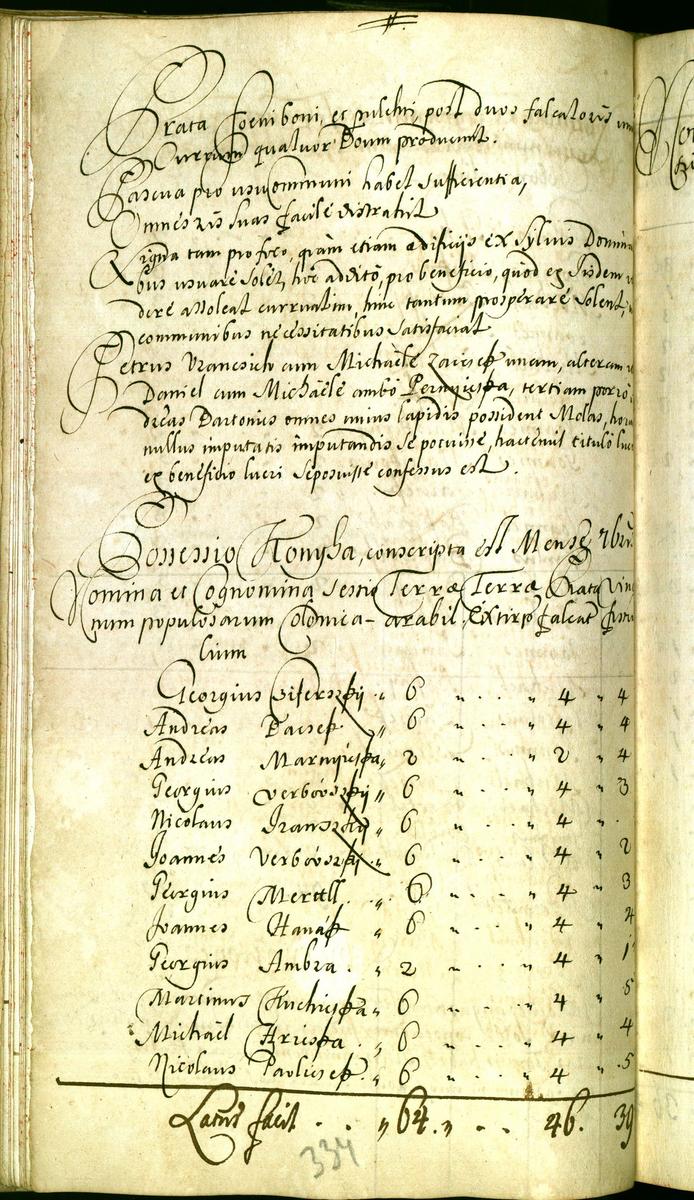 Prata foeni boni, et pulchri, post duos falcatores
Currum quatuor Boum producunt.
Pascua pro usu communi habet sufficientia,
Omnes res suas facile distrahit
Ligna tam pro foco, quam etiam aedificijs ex Sylvis Domina
bus usuare solet, hoc addito, pro beneficio, quod ex Iisdem
dere assoleat curruatim, hinc tantum prosperare solent,
communibus necessitatibus satisfaciat
Petrus Urancsich cum Michaele Zaicsek unam, alteram
Daniel cum Michaële ambo tertiam porro
dicas Bartonius omnes unius lapidis possident Molas,
nullus imputatis imputandis se potuisse, hactenus titulo
ex beneficio lucri seposuisse confessus est.
Possessio Konyha, conscripta est Mense 7bri
Nomina et Cognomina Sessio Terrae Terrae Prata Vin
num populosarum Colonica- arabil. Extirp falcat
lium
Georgius 6 4 4
Andreas Bacsek 6 4 4
Andreas 2 2 4
Georgius Verbovszkij 6 4 3
Nicolaus 6 4
Joannes Verbovszkij 6 4 2
Georgius Mertell 6 4 3
Joannes Hanák 6 4 4
Georgius Ambra 2 4 1
Martinus 6 4 5
Michaël Hricska 6 4 4
Nicolaus Pavlicsek 6 4 5
Latus facit 64 46 39
334